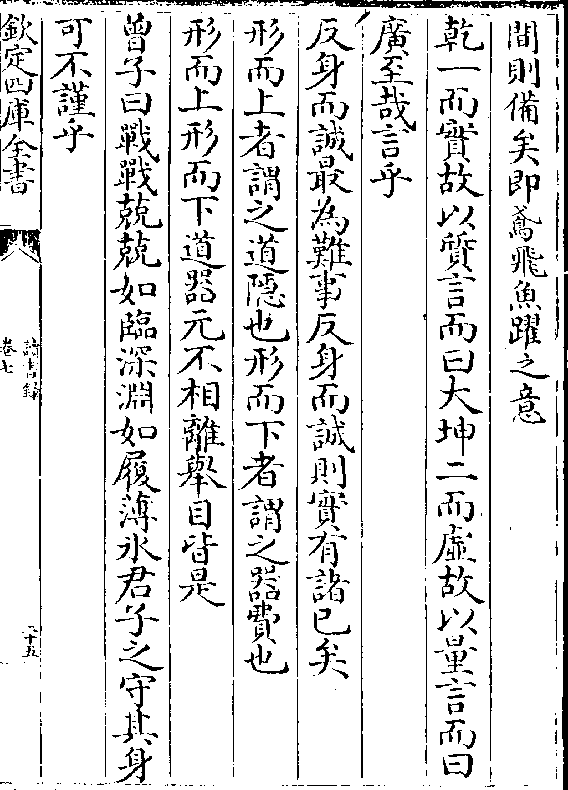 間則備矣即鳶飛魚躍之意
乾一而實故以質言而曰大坤二而虛故以量言而曰
廣至哉言乎
反身而誠最為難事反身而誠則實有諸己矣
形而上者謂之道隱也形而下者謂之器費也
形而上形而下道器元不相離舉目皆是
曾子曰戰戰兢兢如臨深淵如履薄氷君子之守其身
可不謹乎
欽定四庫全書
讀書録
卷七
二十五